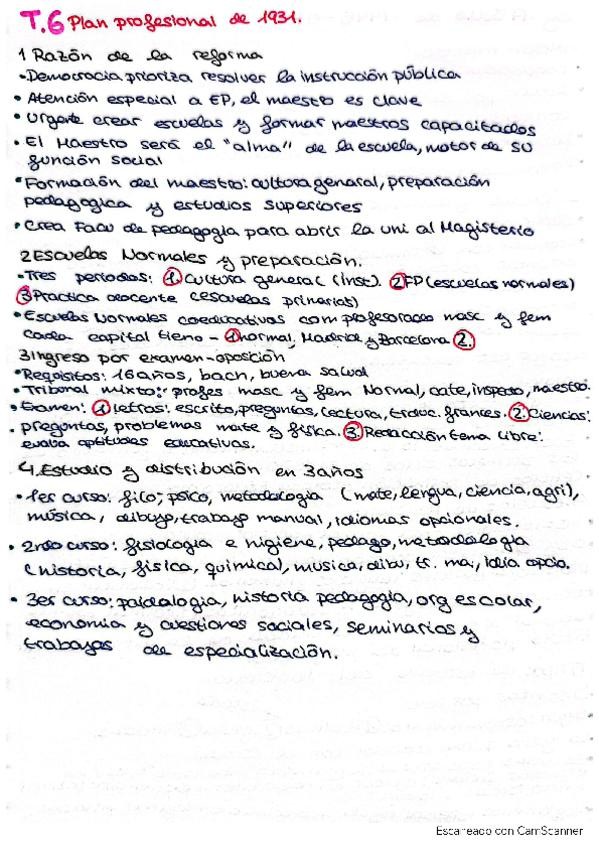 T.6 Plan profesional de 1931.
1 Razón de la reforma
•Democracia prioriza resolver la instrucción pública
• Atención especial a EP, el maestro es clave
• Urgente crear escuelas y formar maestros capacitados
• El Maestro será el "alma" de la escuela, motor de su
función social
•Formación del maestro: cultura general, preparación
pedagogica y estudios superiores
• Crea Facu de pedagogía para abrir la uni al Magisterio
2 Escuelas Normales y preparación.
•Tres periodos: 1. Cultura general (inst). 2 FP (escuelas normales)
3 Practica docente (escuelas primarias)
•Escuelas Normales coeducativas com profesorado masc y fem
cada capital tiene - 1 normal, Madrid y Barcelona 2.
3 Ingreso por examen-oposición
•Requisitos: 16 años, bach, buena salud
•Tribunal mixto: profes masc y fem Normal, cate, inspecto, maestro.
•Examen: 1. letras: escrito, preguntas, lectura, traduc. frances. 2. Ciencias:
• preguntas, problemas mate y física. 3. Redacción tema libre:
evalua aptitudes educativas.
4. Estudio y distribución en 3 años
• 1er curso: filo, psico, metodología (mate, lengua, ciencia, agri),
música, dibujo, trabajo manual, idiomas opcionales.
• 2ndo curso: fisiologia e higiene, pedago, metodología
(historia, física, quimica), musica, dibu, tr. ma., idio opcio.
• 3er curso: paidologia, historia pedagogia, org escolar,
economia y cuestiones sociales, seminarios y
trabajos de especialización.
Escaneado con CamScanner